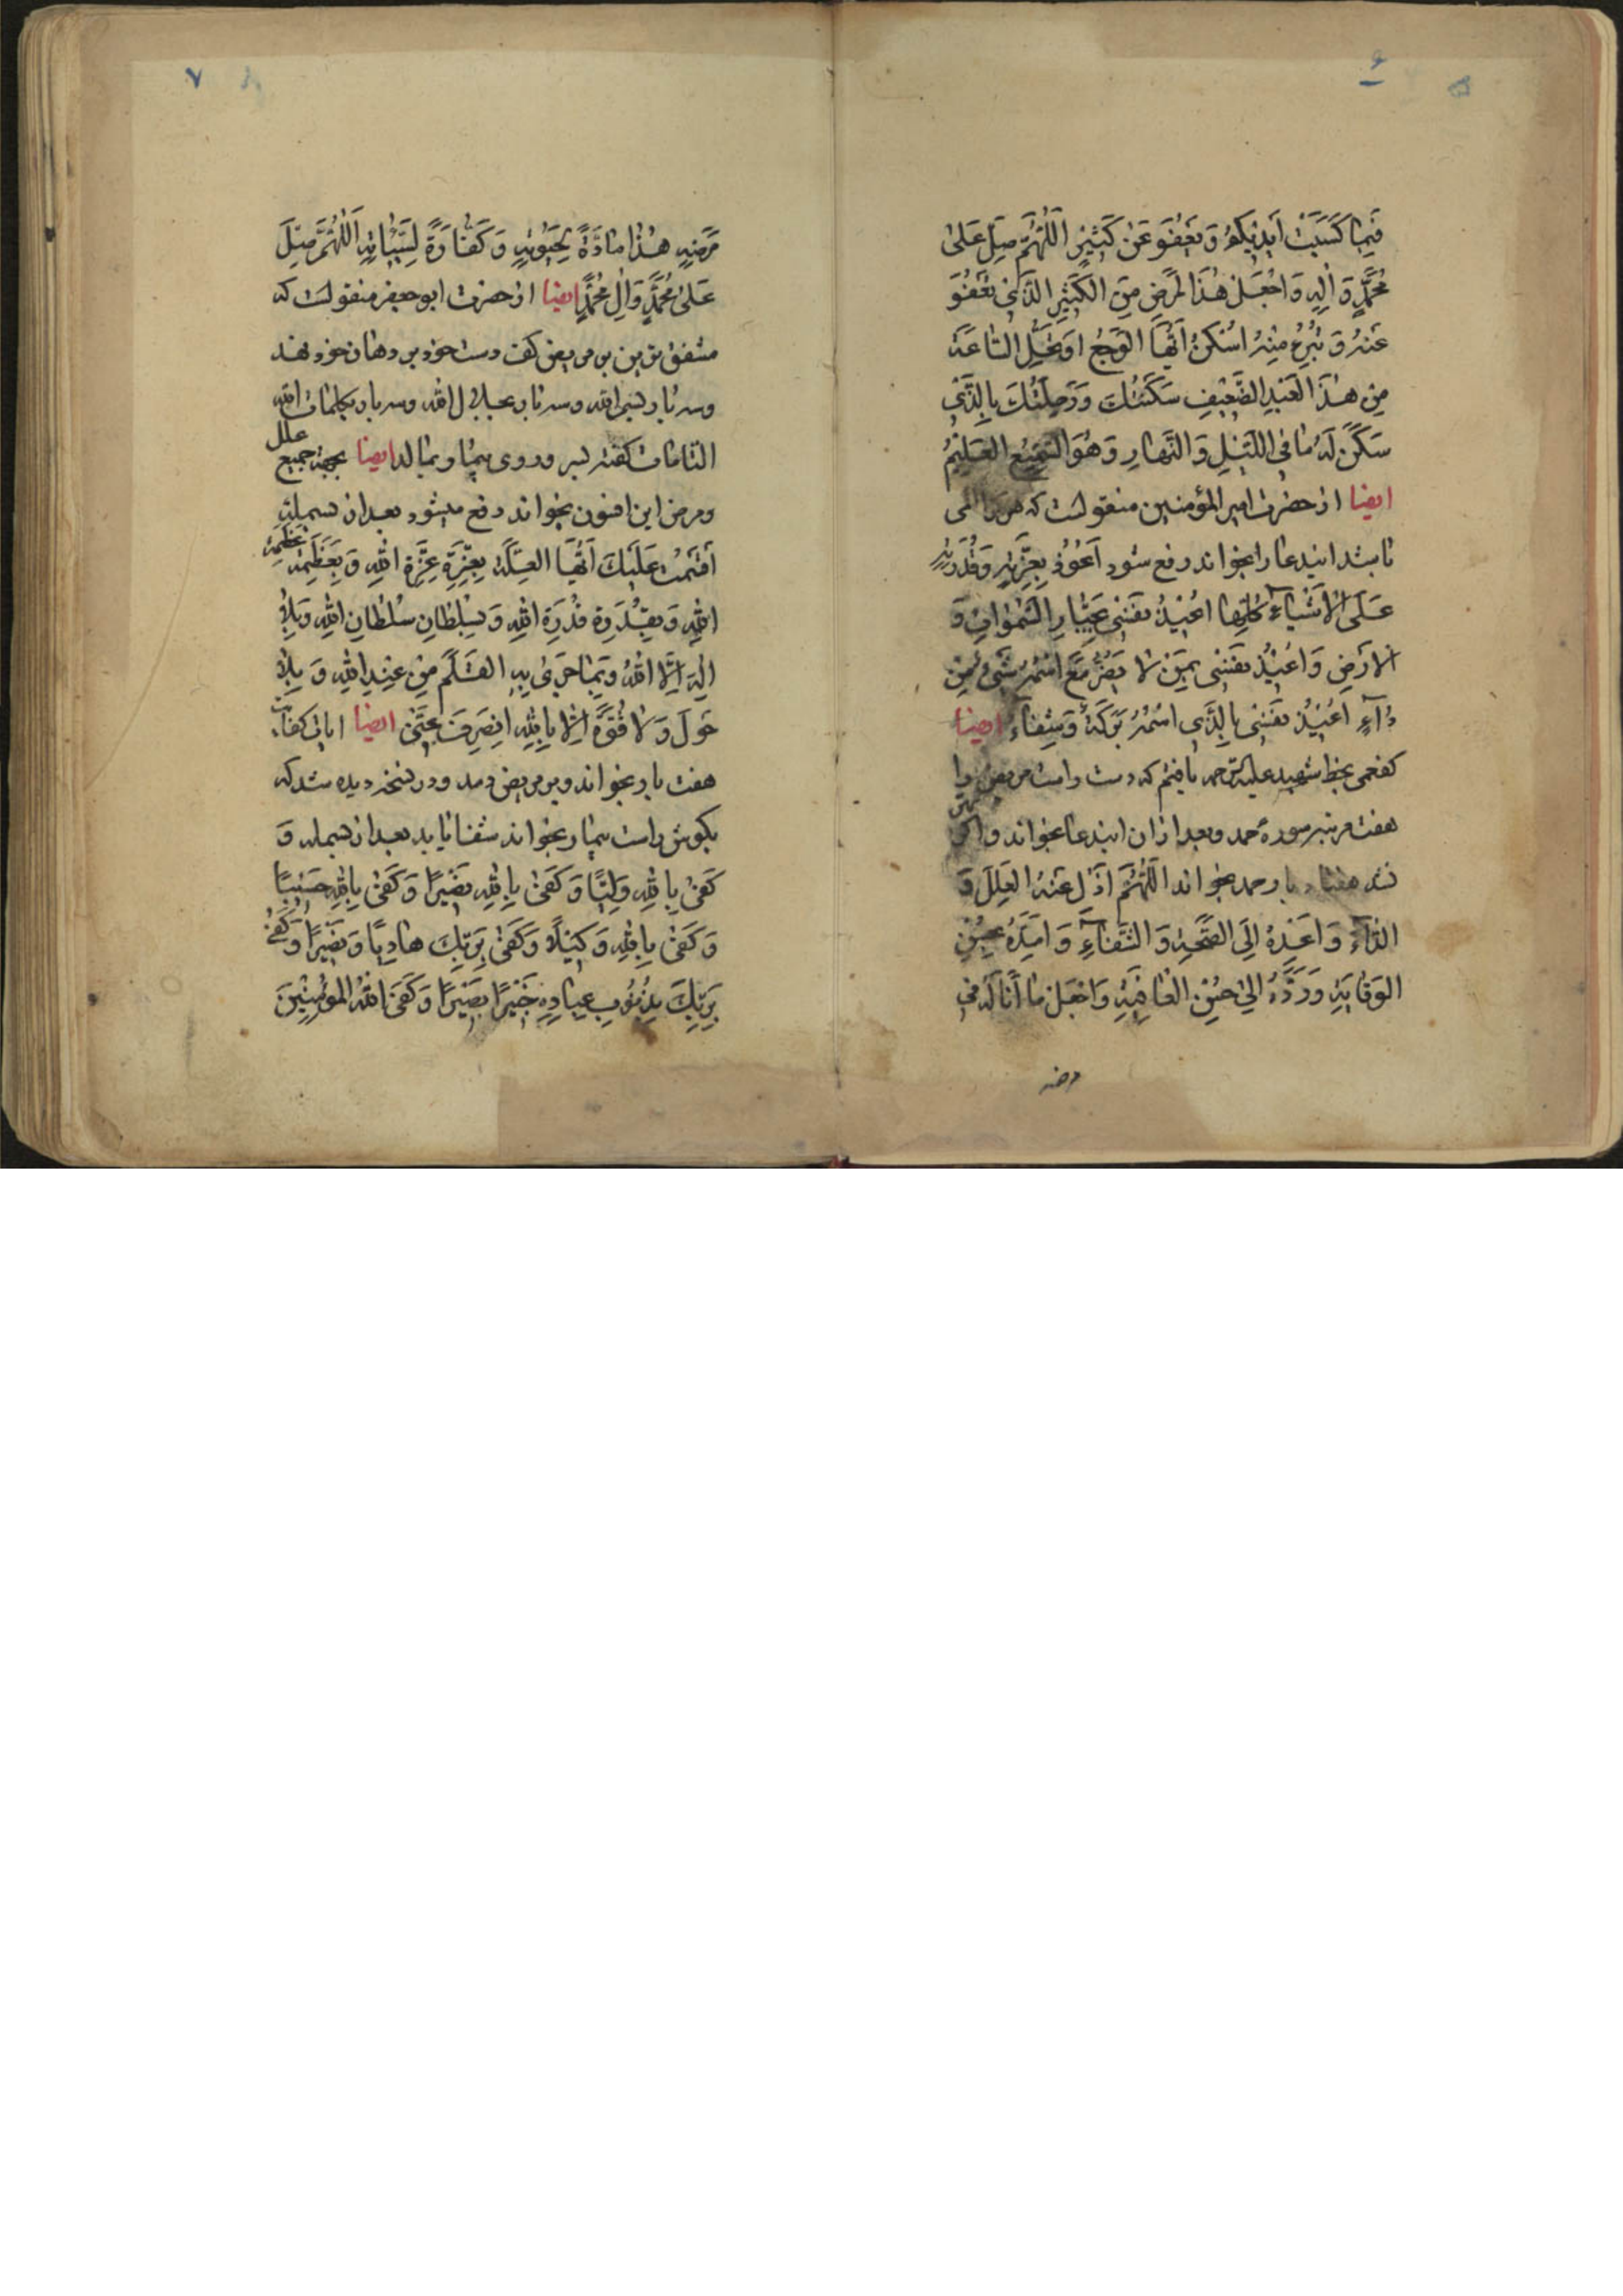 ۶
فَبِمَا كَسَبَتْ اَيْدِيكُمْ وَ يَعْفُو عَنْ كَثِيرٍ اَللّٰهُمَّ صَلِّ عَلىٰ
مُحَمَّدٍ وَ اٰلِهِ وَ اجْعَلْ هٰذَا لْمَرَضَ مِنَ الْكَثِيرِ الَّذِي تَعْفُو
عَنْهُ وَ تُبْرِئُ مِنْهُ اُسْكُنْ اَيُّهَا الْوَجَعُ السَّاعَةَ
مِنْ هٰذَا الْعَبْدِ الضَّعِيفِ سَكَّنْتُكَ وَ رَحَّلْتُكَ بِالَّذِي
سَكَنَ لَهُ مَا فِي اللَّيْلِ وَ النَّهَارِ وَ هُوَ السَّمِيعُ الْعَلِيمُ
ایضا از حضرت امیر المؤمنین منقولست که هر که را المی
باشد ایندعا را بخواند رفع شود اَعُوذُ بِعِزَّتِهِ وَ قُدْرَتِهِ
عَلَى الْاَشْيَاءِ كُلِّهَا اُعِيذُ نَفْسِي بِجَبَّارِ السَّمٰوَاتِ وَ
الْاَرْضِ وَ اُعِيذُ نَفْسِي بِمَنْ لَا يَضُرُّ مَعَ اسْمِهِ شَيْءٌ مِنْ
دَآءٍ اُعِيذُ نَفْسِي بِالَّذِي اسْمُهُ بَرَكَةٌ وَ شِفَاءٌ ایضا
کفعمی بخط شهید علیه الرحمه یافتم که دست راست مریض را
هفت مرتبه سوره حمد و بعد از آن ایندعا بخواند و اگر بهتر
نشد هفتاد بار حمد بخواند اَللّٰهُمَّ اَزِلْ عَنْهُ الْعِلَلَ وَ
الدَّآءَ وَ اَعِدْهُ اِلَى الصِّحَّةِ وَ الشِّفَآءِ وَ اَمِدَّهُ بِحُسْنِ
الْوِقَايَةِ وَ رُدَّهُ اِلىٰ حُسْنِ الْعَافِيَةِ وَ اجْعَلْ مَا اَنَالَهُ فِي
۷
مَرَضِهِ هٰذَا مَادَّةً لِحَيٰوتِهِ وَ كَفَّارَةً لِسَيِّئَاتِهِ اَللّٰهُمَّ صَلِّ
عَلىٰ مُحَمَّدٍ وَ اٰلِ مُحَمَّدٍ ایضا از حضرت ابو جعفر منقولست که
مشفق ترین بر مریض کف دست خود بر دهان خود نهد
و سه بار بسم الله و سه بار بجلال الله و سه بار بکلمات الله
التامات کفته بسر و روی بیمار بمالد ایضا بجهة جمیع علل
و مرض این افسون بخواند دفع میشود بعد از بسمله
اَقْسَمْتُ عَلَيْكَ اَيَّتُهَا الْعِلَّةُ بِعِزَّةِ عِزَّةِ اللّٰهِ وَ بِعَظَمَةِ عَظَمَةِ
اللّٰهِ وَ بِقُدْرَةِ قُدْرَةِ اللّٰهِ وَ بِسُلْطَانِ سُلْطَانِ اللّٰهِ وَ بِلَا
اِلٰهَ اِلَّا اللّٰهُ وَ بِمَا جَرٰى بِهِ الْقَلَمُ مِنْ عِنْدِ اللّٰهِ وَ بِلَا
حَوْلَ وَ لَا قُوَّةَ اِلَّا بِاللّٰهِ اِنْصَرِفْ عَنِّي ایضا ایات کفایت
هفت بار بخواند و بر مریض دمد و در نسخه دیده شد که
بکوش راست بیمار بخواند شفا یابد بعد از بسمله وَ
كَفىٰ بِاللّٰهِ وَلِيًّا وَ كَفىٰ بِاللّٰهِ نَصِيرًا وَ كَفىٰ بِاللّٰهِ حَسِيبًا
وَ كَفىٰ بِاللّٰهِ وَكِيلًا وَ كَفىٰ بِرَبِّكَ هَادِيًا وَ نَصِيرًا وَ كَفىٰ
بِرَبِّكَ بِذُنُوبِ عِبَادِهِ خَبِيرًا بَصِيرًا وَ كَفَى اللّٰهُ الْمُؤْمِنِينَ